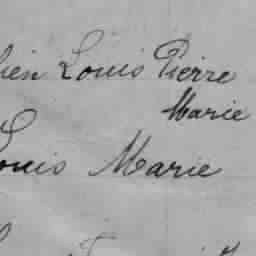 Louis Pierre
Marie
Louis Marie